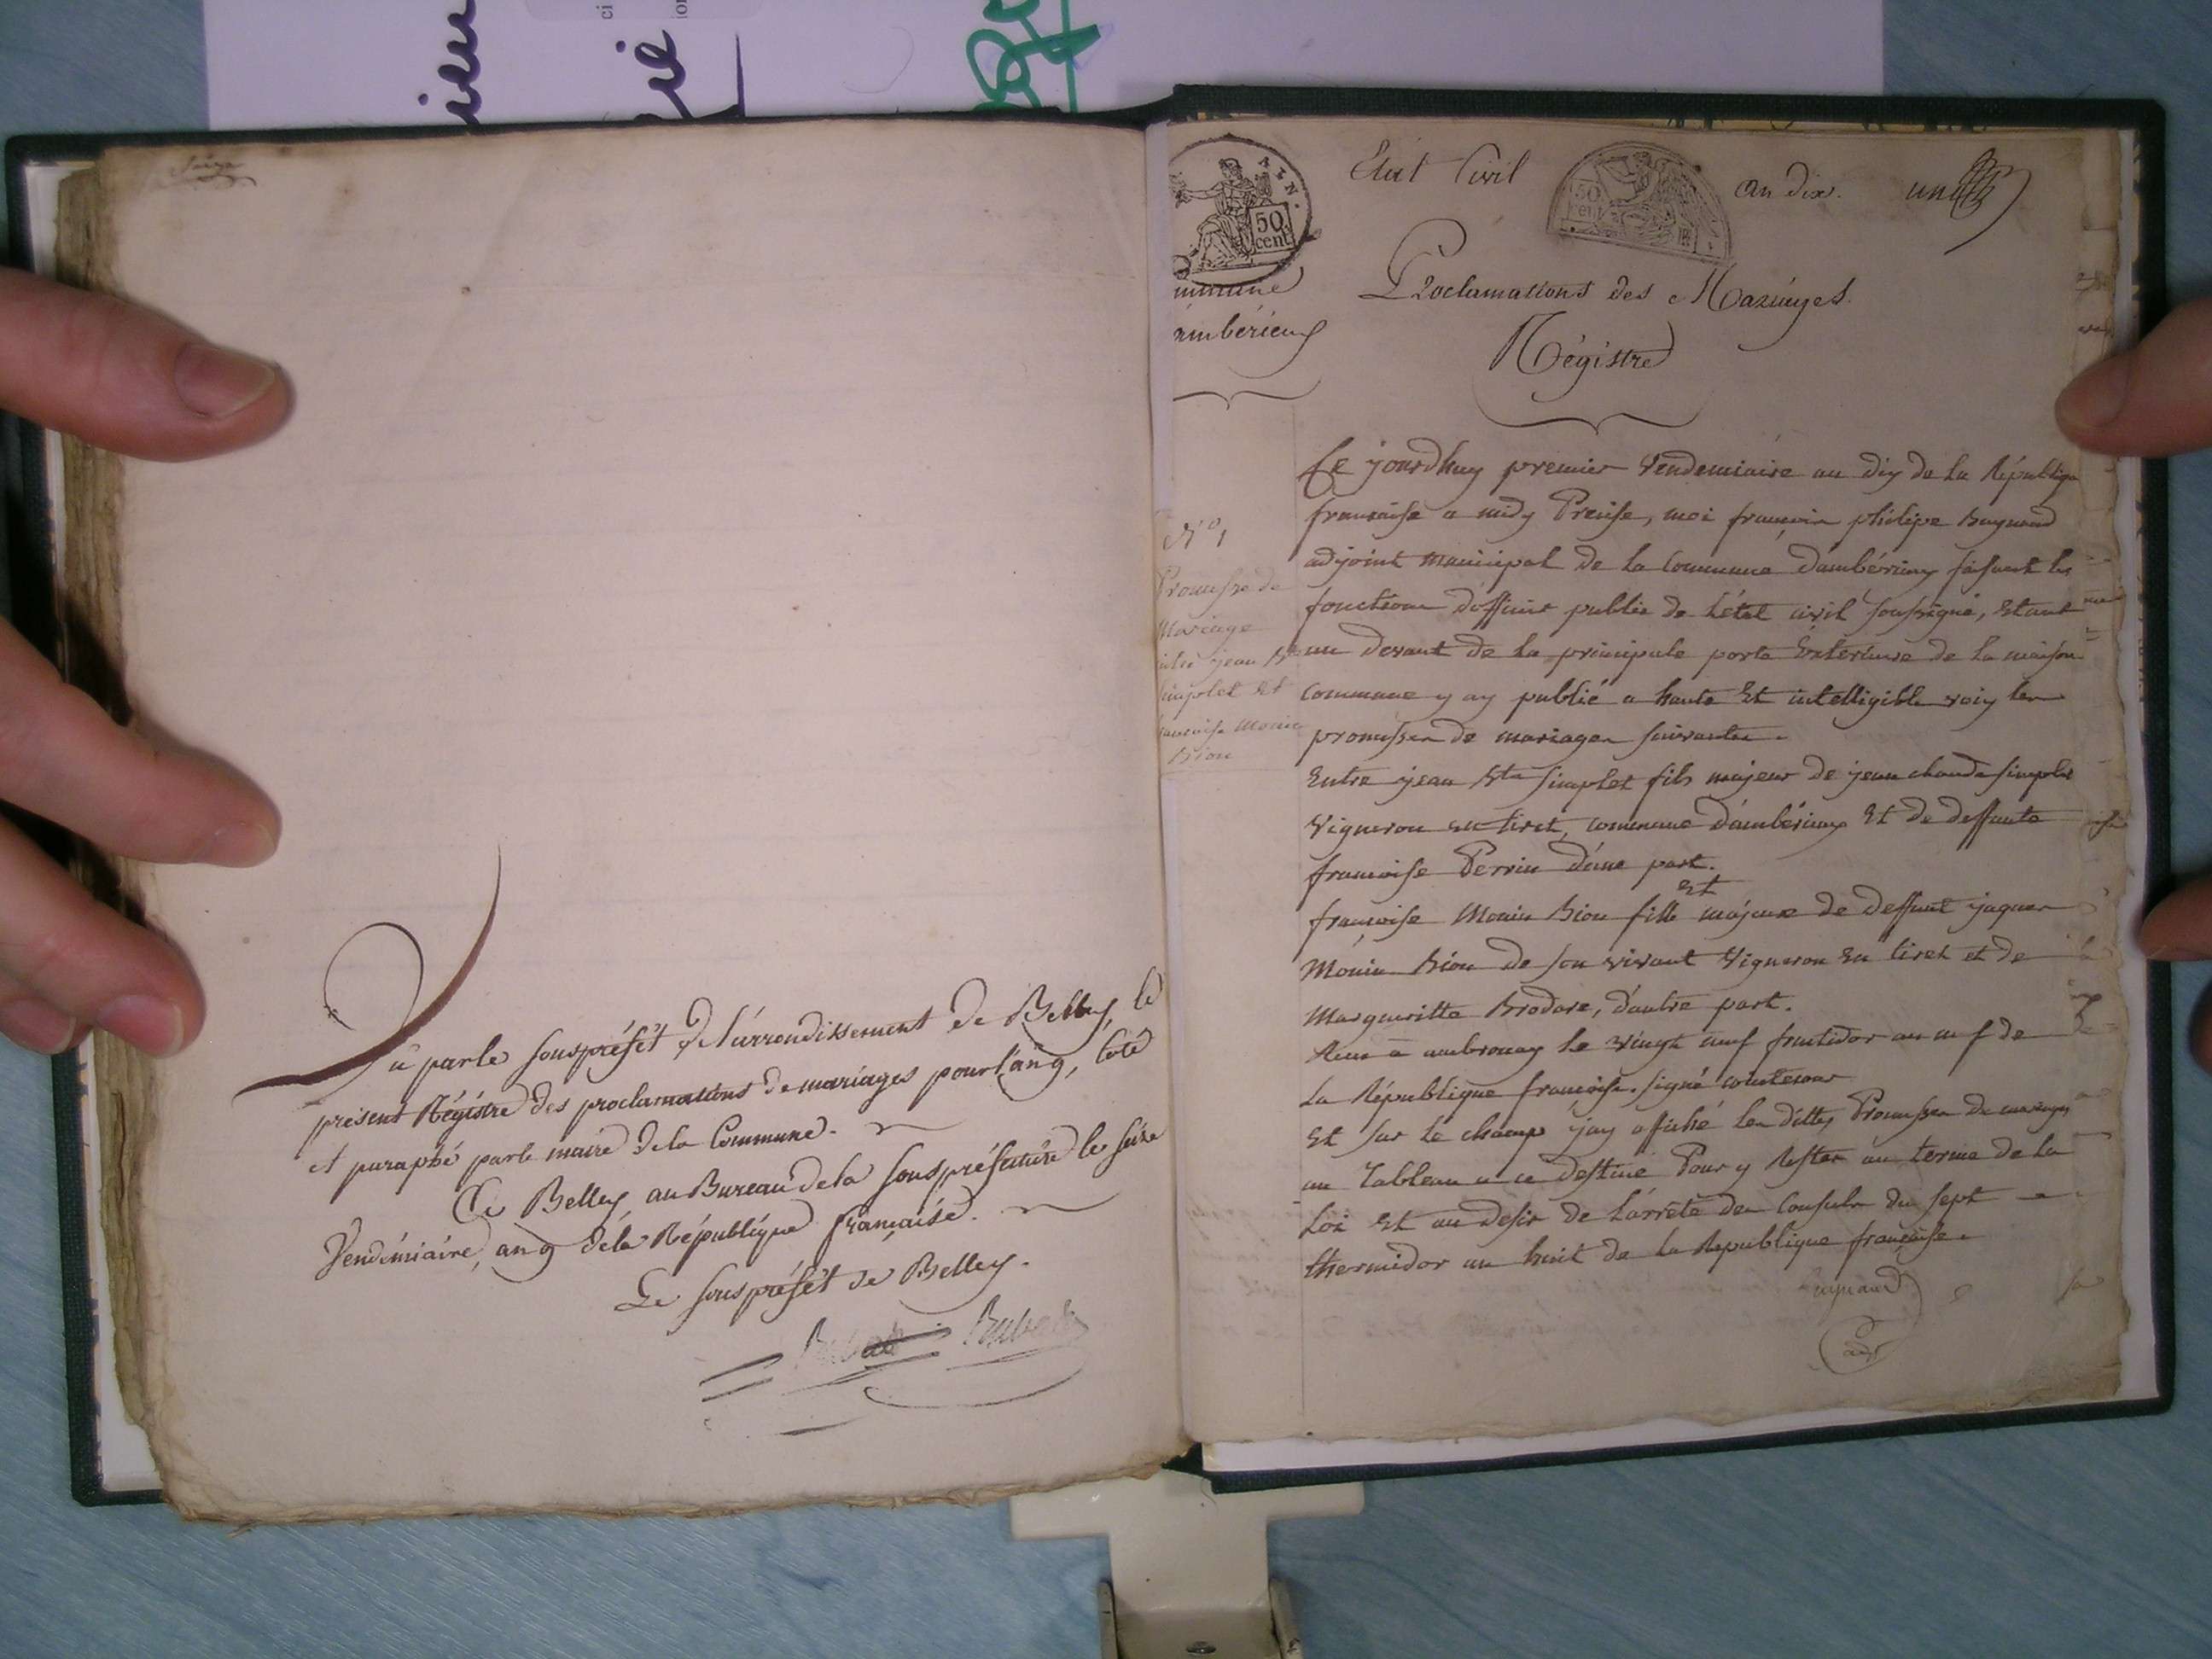 Seize
Vu par le sousprêfêt de l'arrondissement de Belley, le
présent Régistre des proclamations de mariages pour l'an 9, coté
et paraphé par le maire de la Commune.
A Belley, au Bureau de la sousprêfecture le seize
Vendémiaire, an 9 de la République française.
Le sousprêfêt de Belley.
AIN.
50
cent
Etat Civil
50
an dix.
un
mmune
mbérieux
Proclamations des Mariages.
Régistre
N° 1
Promesse de
Mariage
jean Bte
simplet Et
francoise Monin
Bion
Ce jourdhuy premier Vendemiaire an dix de la Républiqe
francaise a midy Precise, moi francois philipe
adjoint municipal de la Commune d'ambérieux faisant les
fonctions d'officier public de l'état civil soussigné, Etant
au devant de la principale porte Exterieure de la maison
commune y ay publié a haute Et intelligible voix les
promesses de mariages suivantes.
Entre jean Bte simplet fils majeur de jean claude simplet
Vigneron en tiret, commune d'ambérieux Et de deffunte
francoise Perrin d'une part.
Et
françoise Monin Bion fille majeure de deffunt jaques
Monin Bion de son vivant Vigneron En tiret et de
Margueritte Brodare, d'autre part.
a ambronay le vingt neuf fructidor an neuf de
La République francoise. signé
Et sur le champ j'ay affiché les dittes Promesses de mariages
au Tableau a ce destiné Pour y Rester au terme de la
Loi Et au desir de L'arrêté des Consuls du sept
thermidor an huit de la Republique française.
adjt